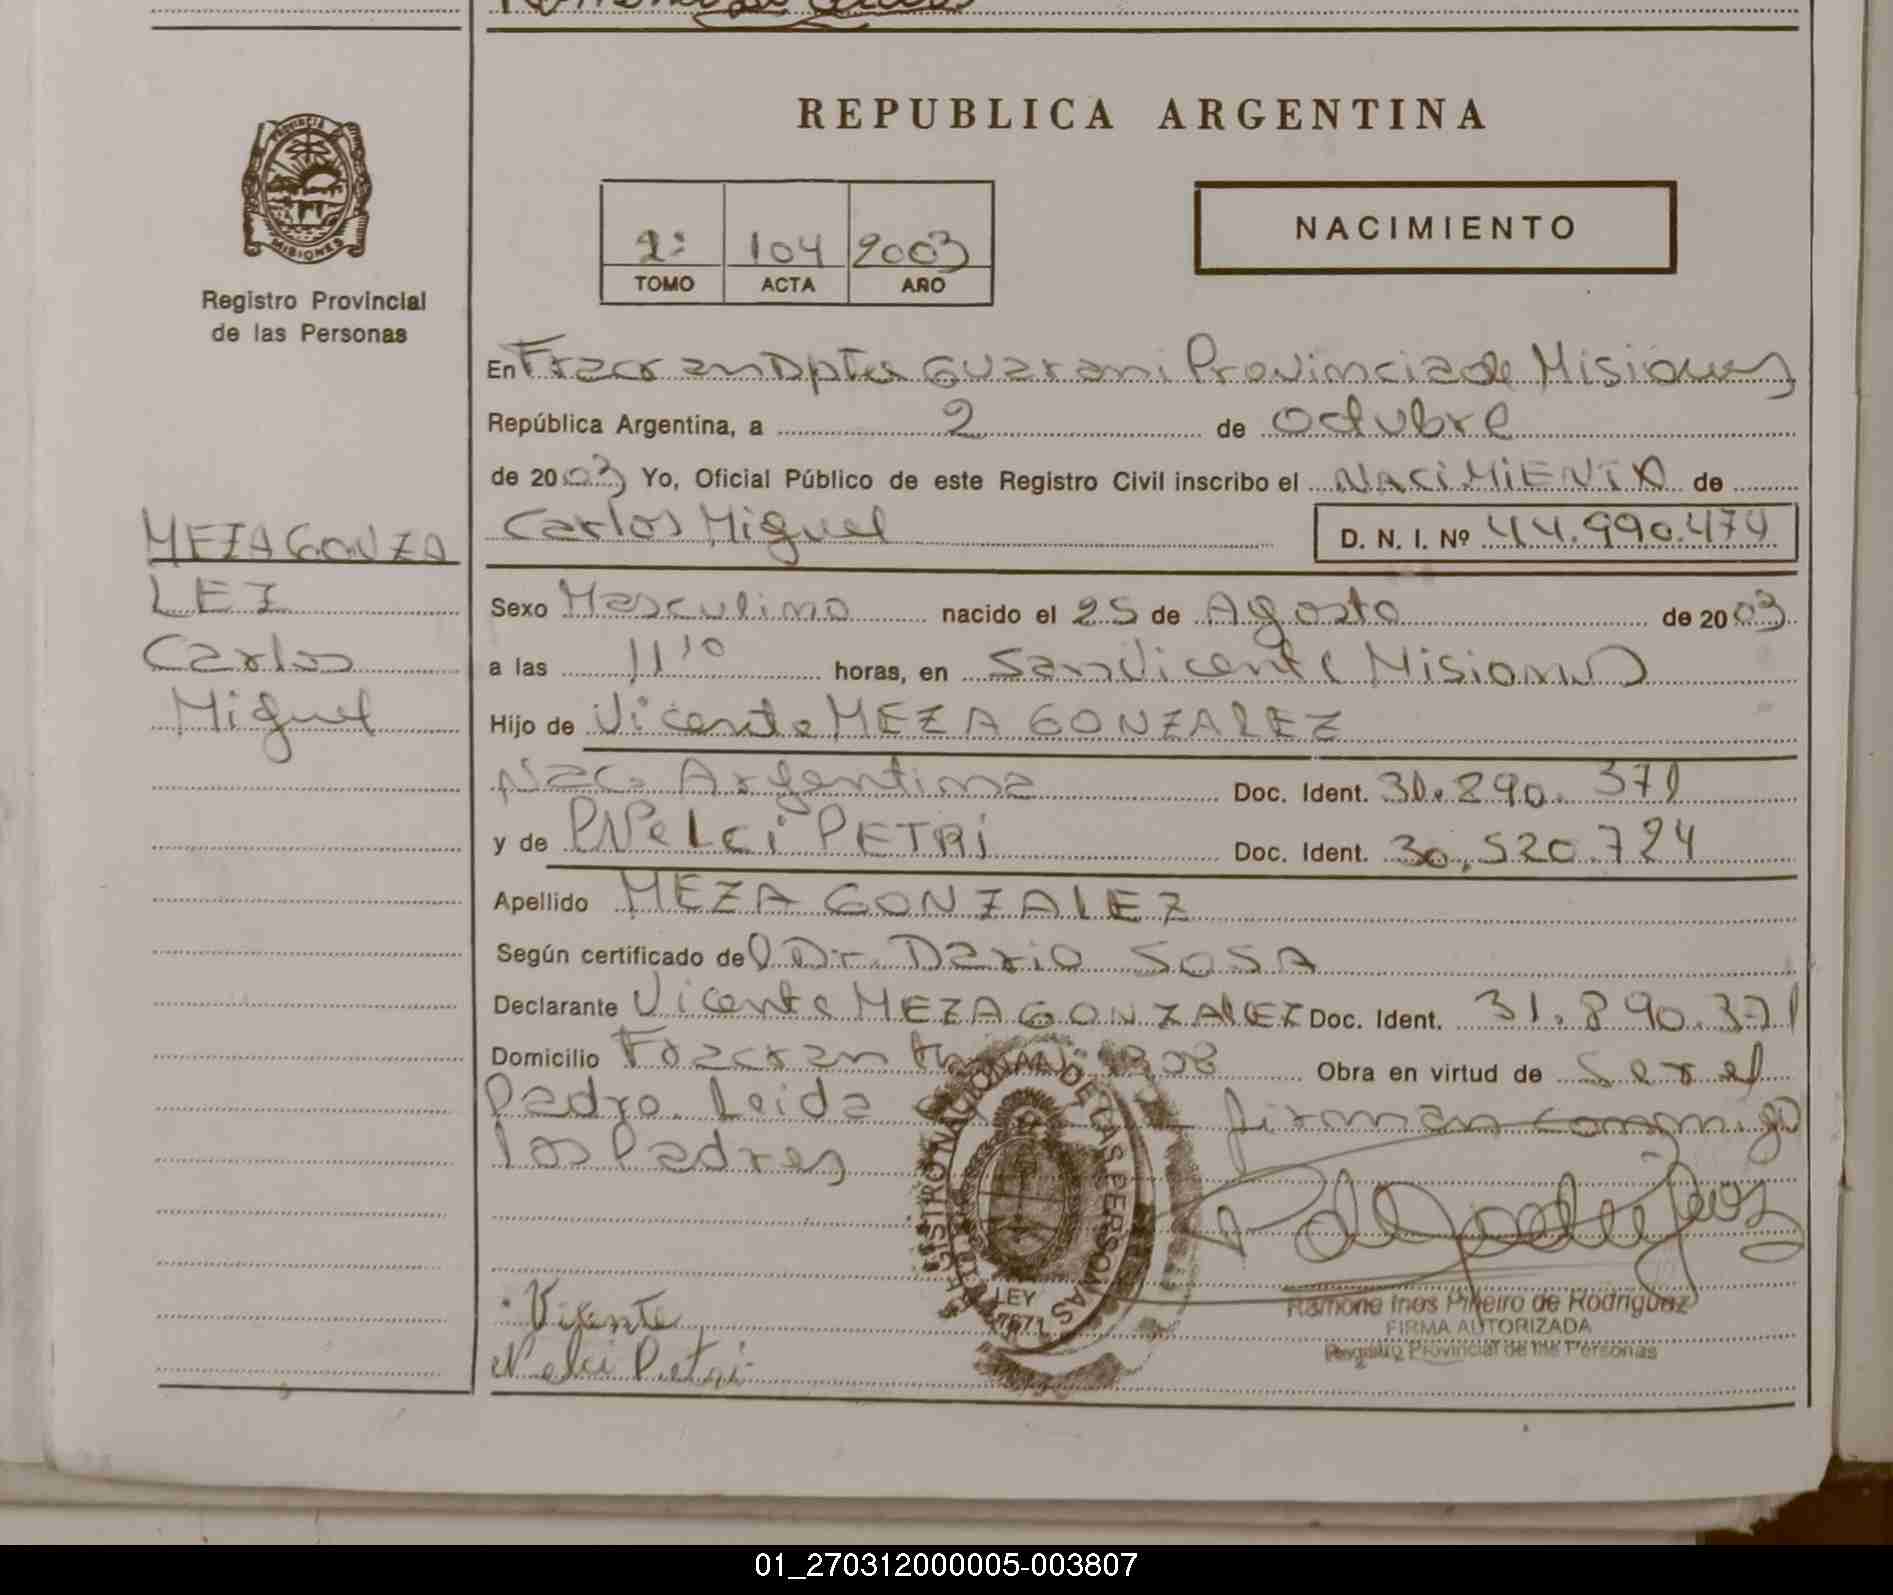 REPUBLICA ARGENTINA
PROVINCIA
MISIONES
Registro Provincial
de las Personas
2º 104 2003
TOMO ACTA AÑO
NACIMIENTO
En Fracran Dpto Guarani Provincia de Misiones
República Argentina, a 2 de octubre
de 2003 Yo, Oficial Público de este Registro Civil inscribo el NACIMIENTO de
Carlos Miguel D. N. I. Nº 44.990.474
MEZA GONZA
LEZ
Carlos
Miguel
Sexo Masculino nacido el 25 de Agosto de 2003
a las 11'10 horas, en San Vicente (Misiones)
Hijo de Vicente MEZA GONZALEZ
Nac. Argentina Doc. Ident. 31.890.371
y de Nelci PETRI Doc. Ident. 30.520.724
Apellido MEZA GONZALEZ
Según certificado del Dr. Dario SOSA
Declarante Vicente MEZA GONZALEZ Doc. Ident. 31.890.371
Domicilio Fracran Obra en virtud de Ser el
Padre. Leida firman conmigo
los Padres
REGISTRO NACIONAL DE LAS PERSONAS
LEY
Vicente
Nelci Petri
Ramona Ines Piñeiro de Rodriguez
FIRMA AUTORIZADA
Registro Provincial de las Personas
01_270312000005-003807